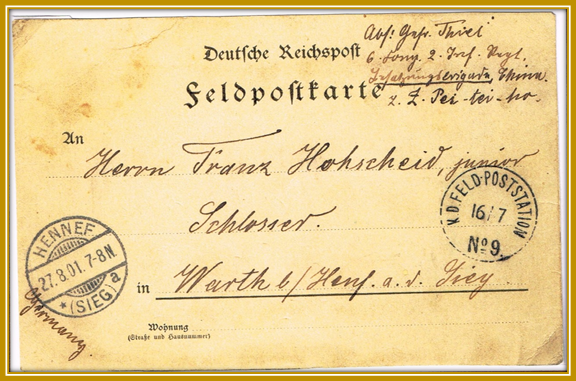 Abs: Gefr. Thiel
6. Komp. 2. Inf. Regt.
Besatzungsbrigade, China.
z. Z. Pei-tei-ho.
Deutsche Reichspost
Feldpostkarte
An
Herrn Franz Hohscheid, junior
Schlosser.
in Warth b/Henf. a. d. Sieg
Wohnung
(Straße und Hausnummer)
K.D. FELD-POSTSTATION
16/7
No 9.
HENNEF
27.8.01.7-8N
* (SIEG) a
Germany.